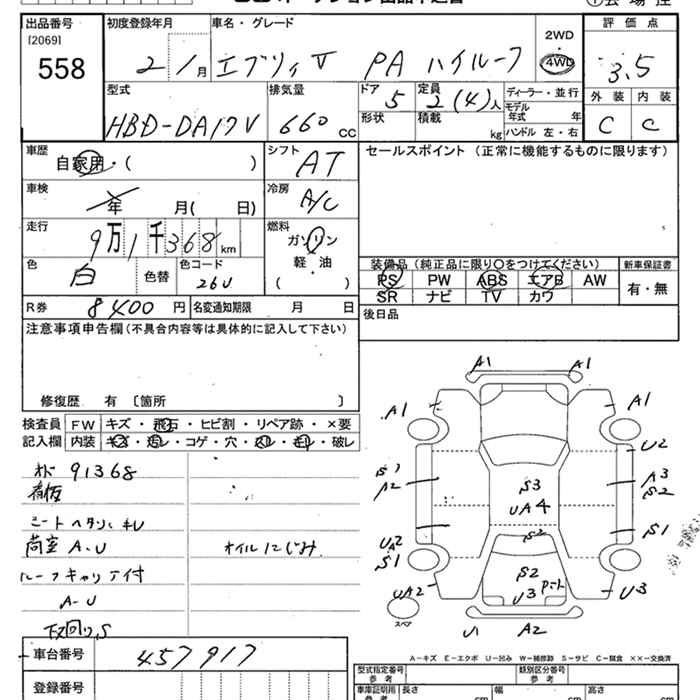 出品番号
[2069]
558
初度登録年月
2 / 1月
車名・グレード
エブリィV PA ハイルーフ
2WD
・
4WD
評価点
3.5
型式
HBD-DA17V
排気量
660 CC
ドア
5
形状
定員
2(4)人
積載
kg
ディーラー・並行
モデル年式 年
ハンドル 左・右
外装 内装
C C
車歴
自家用・( )
シフト
AT
セールスポイント (正常に機能するものに限ります)
車検
年 月( 日)
冷房
A/C
走行
9万1千368km
燃料
ガソリン
軽・油
( )
色
白
色替
色コード
26U
装備品 (純正品に限り○をつけてください)
PS PW ABS エアB AW
SR ナビ TV カワ
新車保証書
有・無
R券 8400円
名変通知期限 月 日
後日品
注意事項申告欄 (不具合内容等は具体的に記入して下さい)
修復歴 有 〔箇所 〕
検査員
記入欄
FW キズ・飛石・ヒビ割・リペア跡・×要
内装 キズ・汚レ・コゲ・穴・スレ・キレ・破レ
91368
シートヘタリ
荷室 A.U
オイルにじみ
ルーフキャリア付
A-U
下回りS
車台番号
457917
登録番号
A1 A1
A1 A1
U2
A2
A3
S2
S3
UA4
S1
S2
UA2
S1
S2
U3
UA2
U3
U1 A2
スペア
A-キズ E-エクボ U-凹み W-補修跡 S-サビ C-腐食 ××-交換済
型式指定番号
参考
類別区分番号
参考
車庫証明用
参考
長さ
cm
幅
cm
高さ
cm